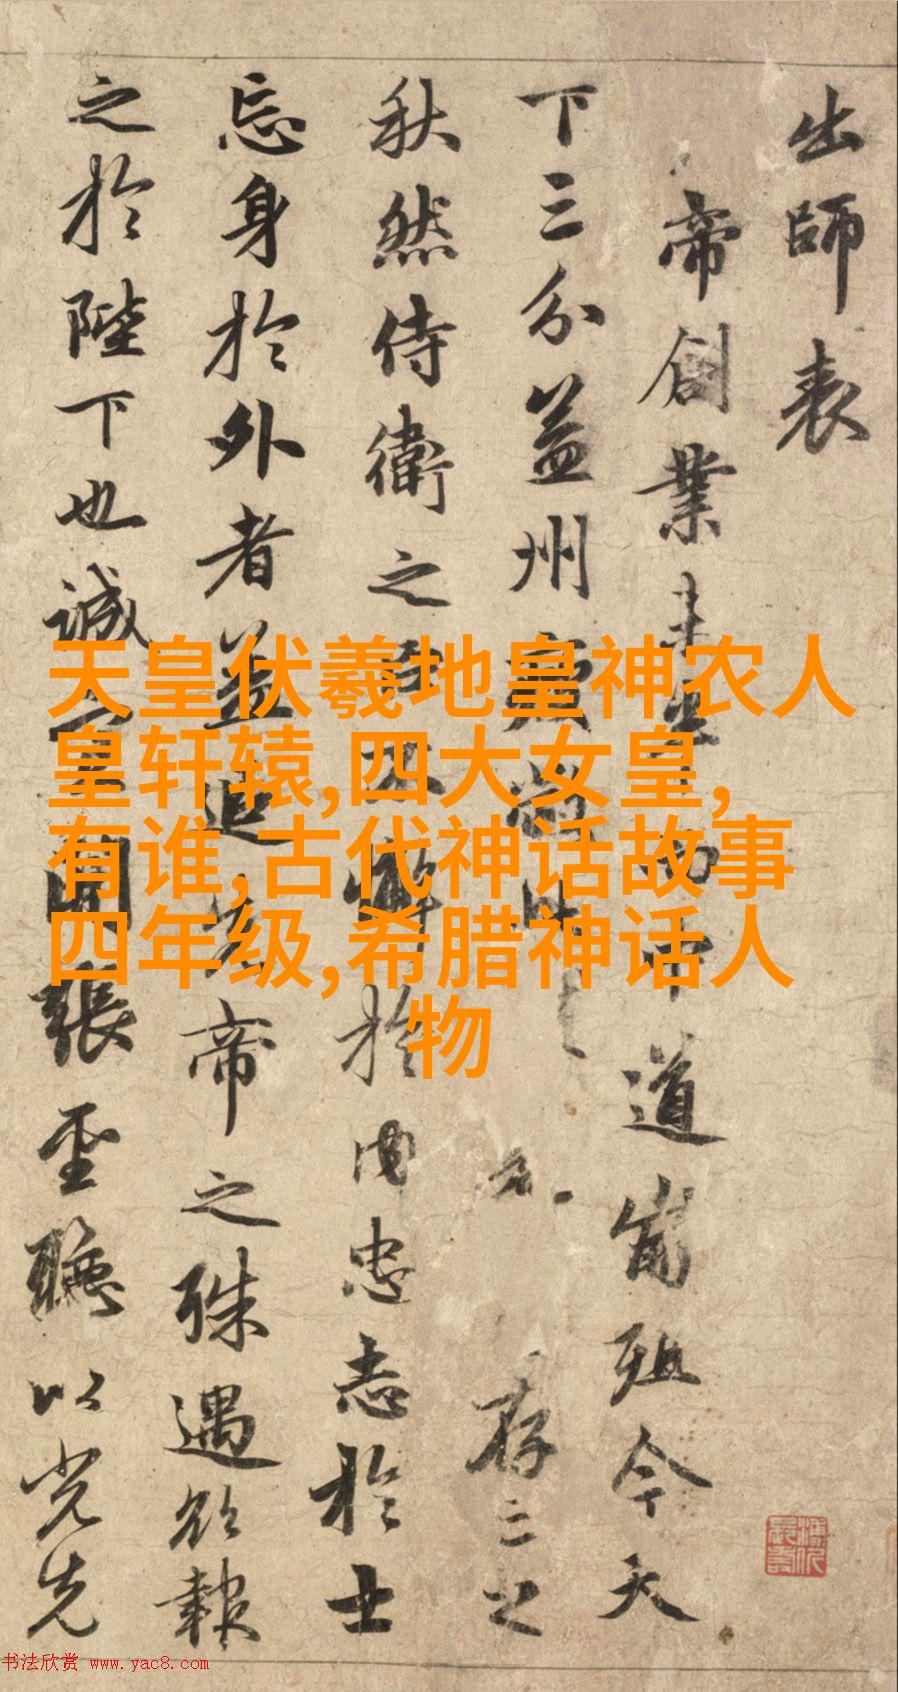 出師表
帝創業未半而中道崩殂今天
下三分益州存亡之
秋然侍衛之臣不懈於內忠志於士
忘身於外者蓋追先帝之殊遇欲報
之於陛下也誠宜開張聖聽以光先
天皇伏羲地皇神农人
皇轩辕,四大女皇,
有谁,古代神话故事
四年级,希腊神话人
物
书法欣赏 www.yac8.com